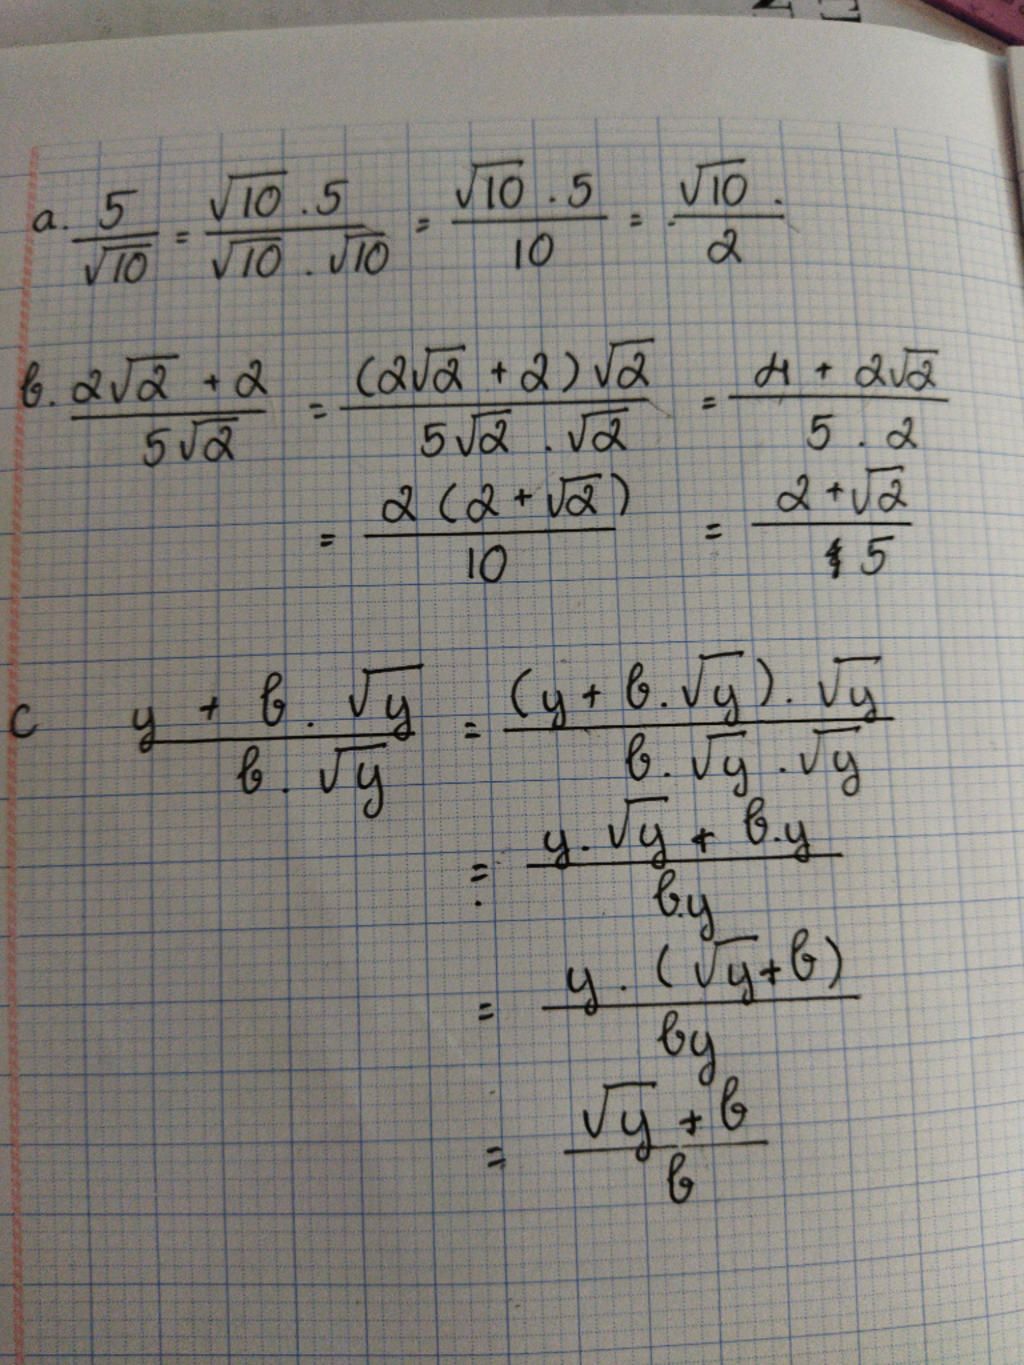 a. 5/√10 = (√10 . 5)/(√10 . √10) = (√10 . 5)/10 = (√10 .)/2
b. (2√2 + 2)/(5√2) = ((2√2 + 2)√2)/(5√2 . √2) = (4 + 2√2)/(5 . 2)
= (2(2 + √2))/10 = (2 + √2)/5
c (y + b . √y)/(b . √y) = ((y + b . √y) . √y)/(b . √y . √y)
= (y . √y + b . y)/(b.y)
= (y . (√y + b))/(by)
= (√y + b)/b